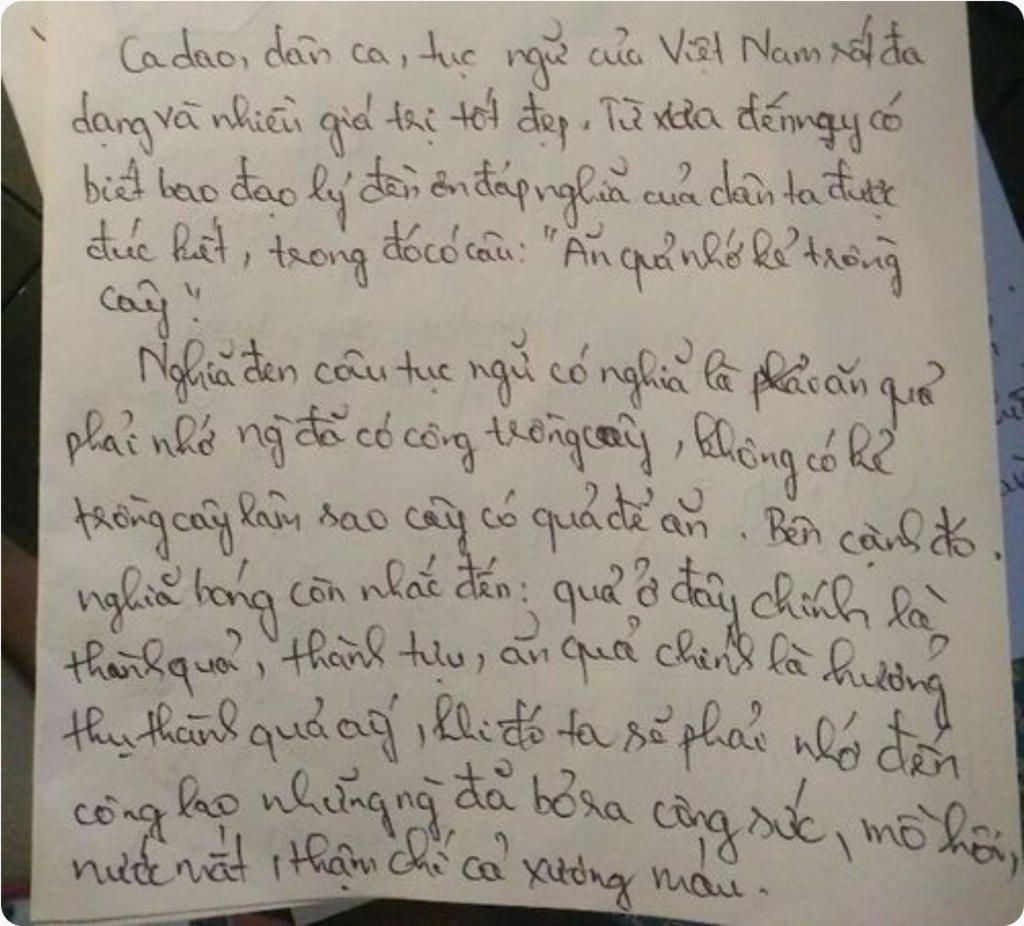 Ca dao, dân ca, tục ngữ của Việt Nam rất đa
dạng và nhiều giá trị tốt đẹp. Từ xưa đến ngy có
biết bao đạo lý đền ơn đáp nghĩa của dân ta được
đúc kết, trong đó có câu: "Ăn quả nhớ kẻ trồng
cây".
Nghĩa đen câu tục ngữ có nghĩa là ăn quả
phải nhớ ng đã có công trồng cây, không có kẻ
trồng cây làm sao cây có quả để ăn. Bên cạnh đó,
nghĩa bóng còn nhắc đến: quả ở đây chính là
thành quả, thành tựu, ăn quả chính là hưởng
thụ thành quả ấy, khi đó ta sẽ phải nhớ đến
công lao những ng đã bỏ ra công sức, mồ hôi,
nước mắt, thậm chí cả xương máu.